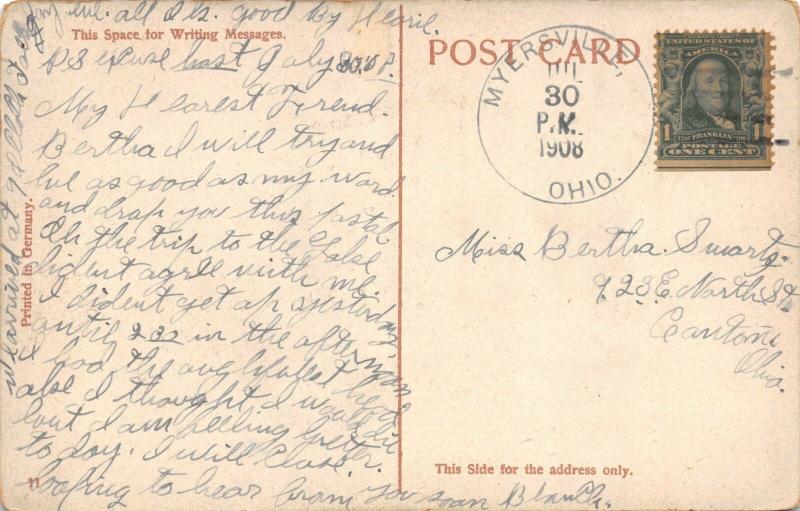 eve. all O.k. good By Hearie.
This Space for Writing Messages.
P.S excuse hast July 30. 08.
My Hearest Friend.
Bertha I will try and
be as good as my word
and drop you this postal
Oh the trip to the
dident agree with me.
I dident get up yesterday,
until 2 30 in the afternoon
I had the ougliest head
ake I thought I would die
but I am feeling better
to day. I will close
hoping to hear from you soon Blanch.
We arrived at 9 O Clock
Printed in Germany.
11
POST CARD
MYERSVILLE,
JUL
30
P.M.
1908
OHIO.
UNITED STATES OF
AMERICA
1
FRANKLIN
1
POSTAGE
ONE CENT
Miss Bertha Swartz.
923 E North St
Canton
Ohio.
This Side for the address only.